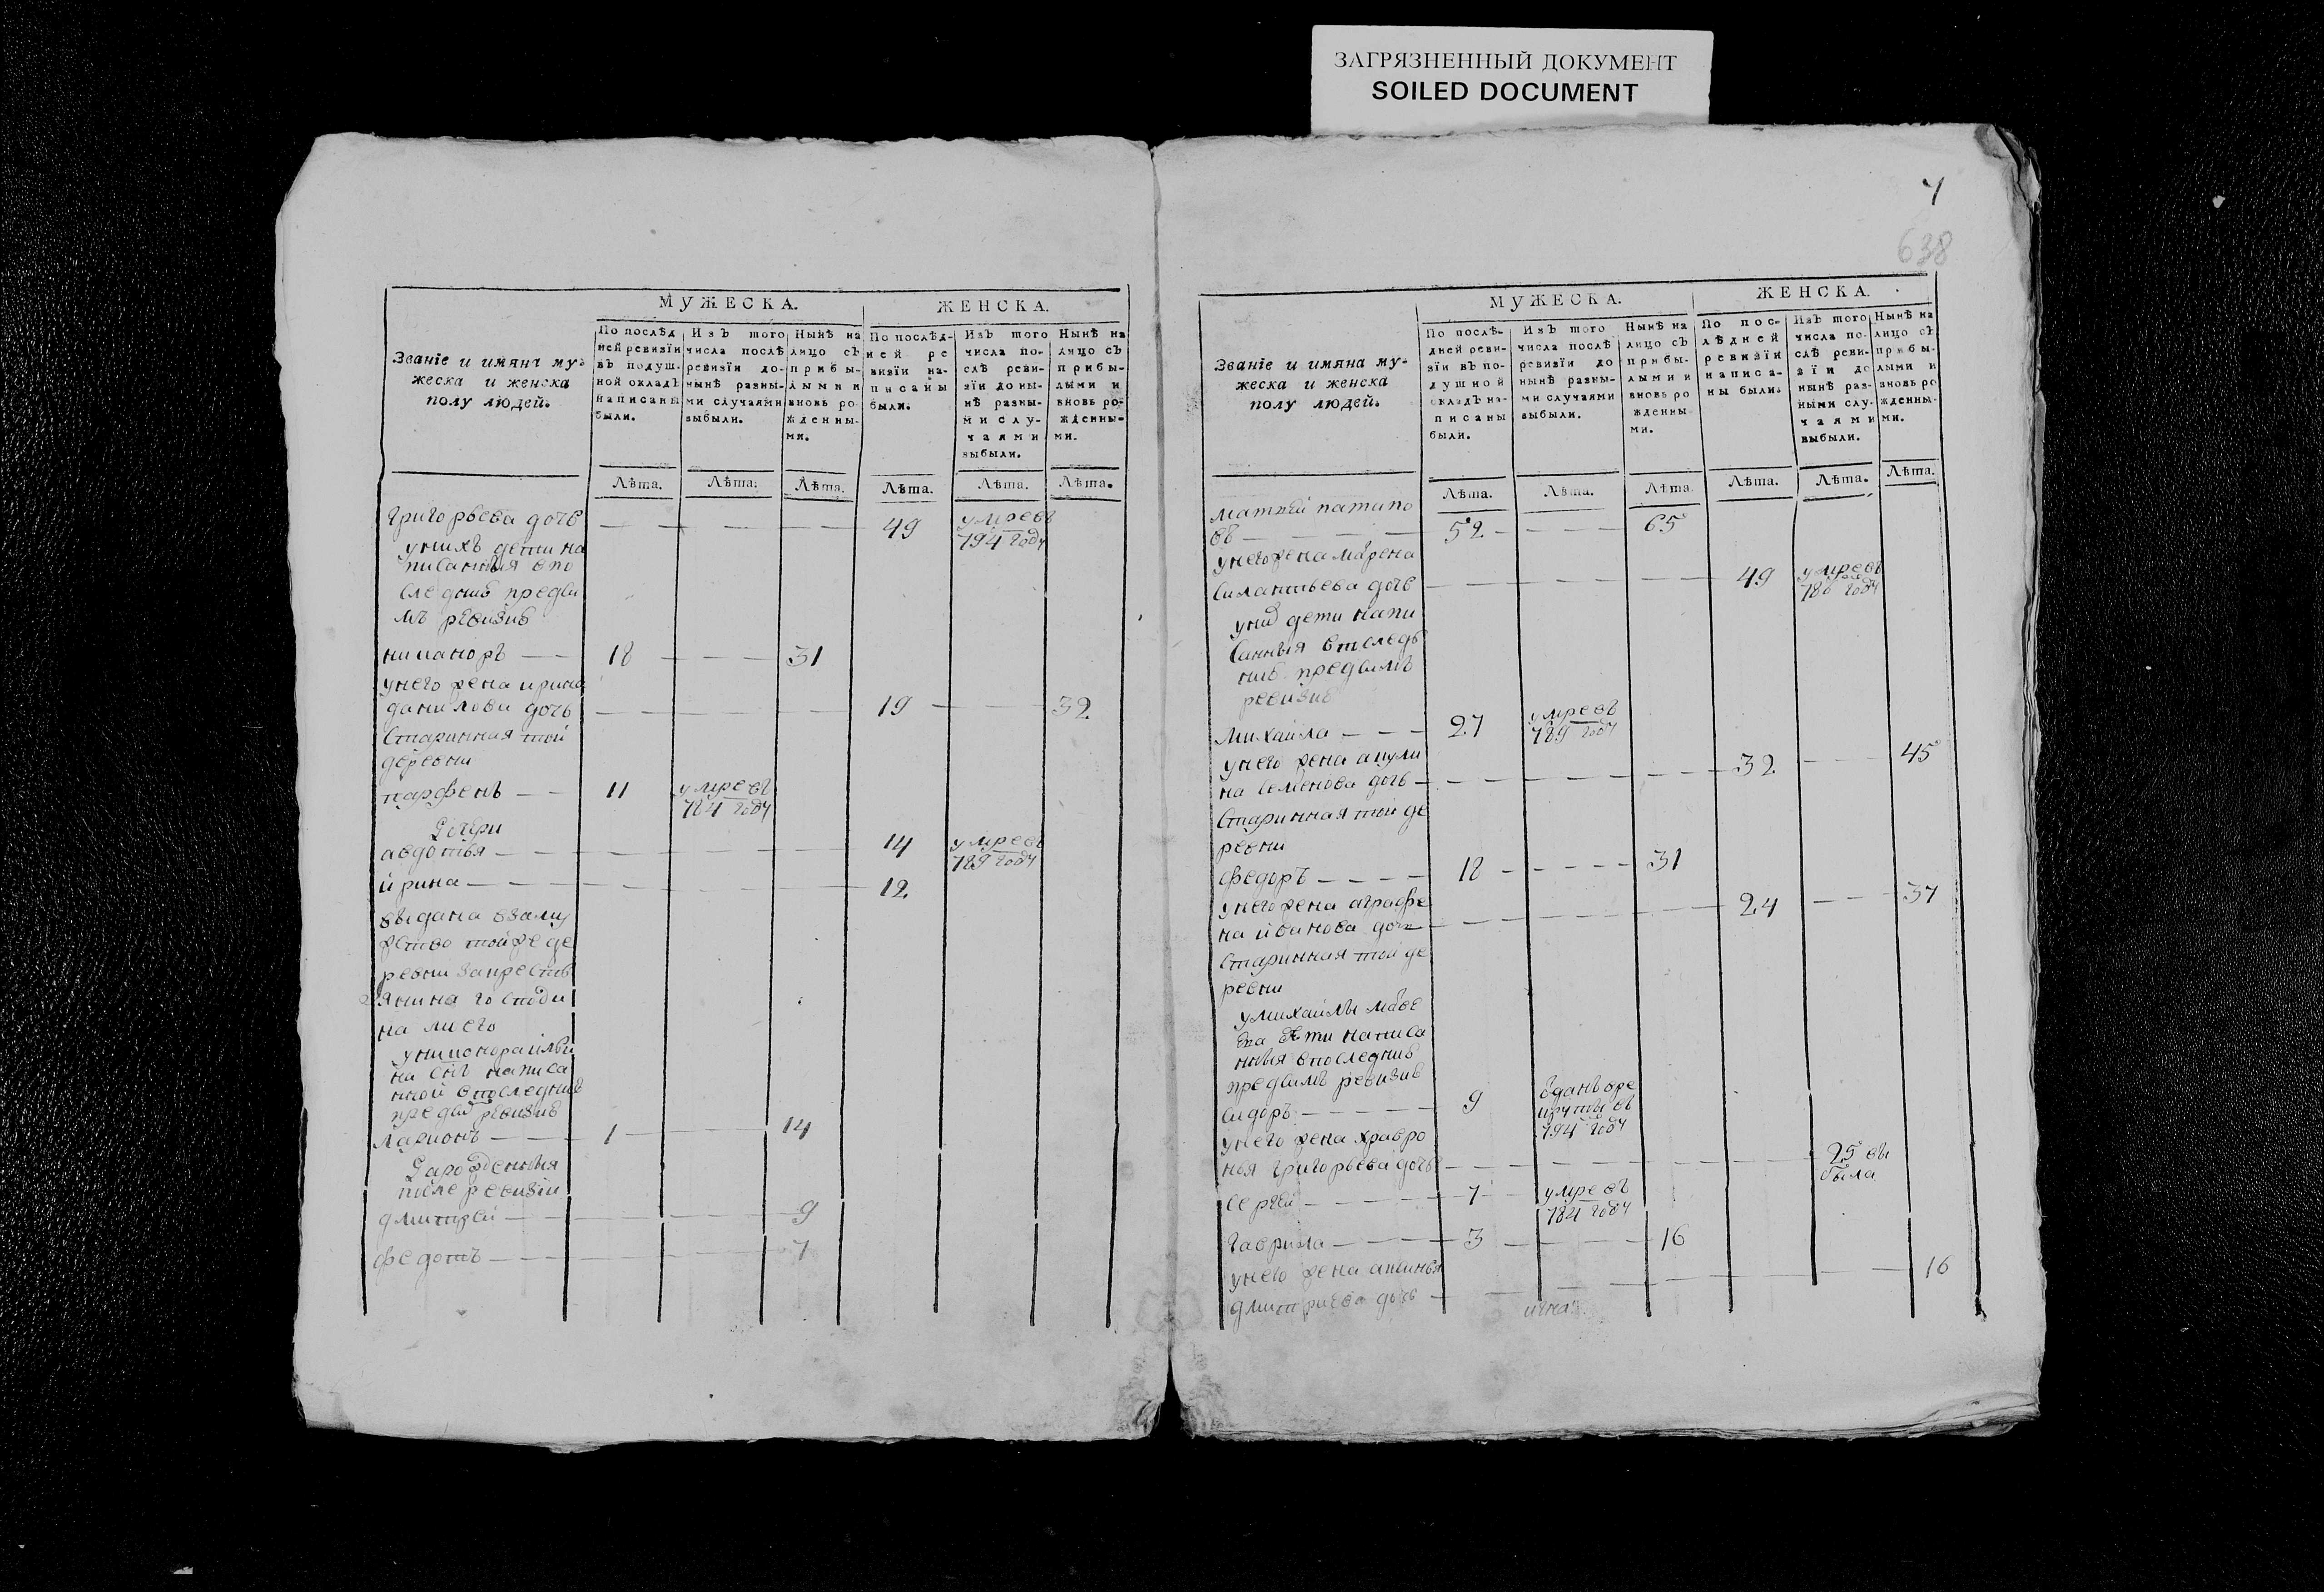 ЗАГРЯЗНЕННЫЙ ДОКУМЕНТ
SOILED DOCUMENT
7
638
МУЖЕСКА. ЖЕНСКА.
Званіе и имяна му-
жеска и женска
полу людей.
По послѣд
ней ревизіи
въ подуш-
ной окладъ
написаны
были.
Изъ того
числа послѣ
ревизіи до-
нынѣ разны-
ми случаями
выбыли.
Нынѣ на
лицо съ
прибы-
лыми и
вновь ро
жденны-
ми.
По послѣд-
ней ре
визіи на-
писаны
были.
Изъ того
числа по-
слѣ реви-
зіи до ны-
нѣ разны-
ми слу-
чаями
выбыли.
Нынѣ на
лицо съ
прибы-
лыми и
вновь ро-
жденны-
ми.
Лѣта. Лѣта. Лѣта. Лѣта. Лѣта. Лѣта.
григорьева дочь 49 умре въ
794 году
унихъ дети на
писанныя впо
следнѣ предъи
мъ ревизиѣ
никаноръ 18 31
унего жена ирина
данилова дочь 19 32
старинная той
деревни
парфенъ 11 умре въ
784 году
дочери
авдотья 14 умре въ
789 году
ирина 12
выдана взаму
жство тойже де
ревни закрестья
янина господи
на
на сынъ написа
нной впоследнѣ
ревизиѣ
ларионъ 1 14
рожденныя
после ревизіи
дмитрей 9
федотъ 7
МУЖЕСКА. ЖЕНСКА.
Званіе и имяна му-
жеска и женска
полу людей.
По послѣ-
дней реви-
зіи въ по-
душной
окладъ на-
писаны
были.
Изъ того
числа послѣ
ревизіи до
нынѣ разны-
ми случаями
выбыли.
Нынѣ на
лицо съ
прибы-
лыми и
вновь ро
жденны
ми.
По пос-
лѣдней
ревизіи
написа-
ны были.
Изъ того
числа по-
слѣ реви-
зіи до
нынѣ раз-
ными слу-
чаями
выбыли.
Нынѣ на
лицо съ
прибы-
лыми и
вновь ро
жденны-
ми.
Лѣта. Лѣта. Лѣта. Лѣта. Лѣта. Лѣта.
матвей патапо
въ 52 65
унего жена
силантьева дочь 49 умре въ
786 году
дети напи
санныя впоследь
ниѣ предъимъ
ревизиѣ
михайла 27 умре въ
789 году
унего жена акули
на семенова дочь 32 45
старинная той де
ревни
федоръ 18 31
унего жена аграфе
на иванова дочь 24 37
старинная той де
ревни
умихайлы матве
ева дети написа
нныя впоследниѣ
предъимъ ревизиѣ
сидоръ 9 отданъ вре
круты въ
794 году
унего жена хавро
нья григорьева дочь 25 вы
была
сергей 7 умре въ
784 году
гаврила 3 16
унего жена аксинья
дмитриева дочь 16